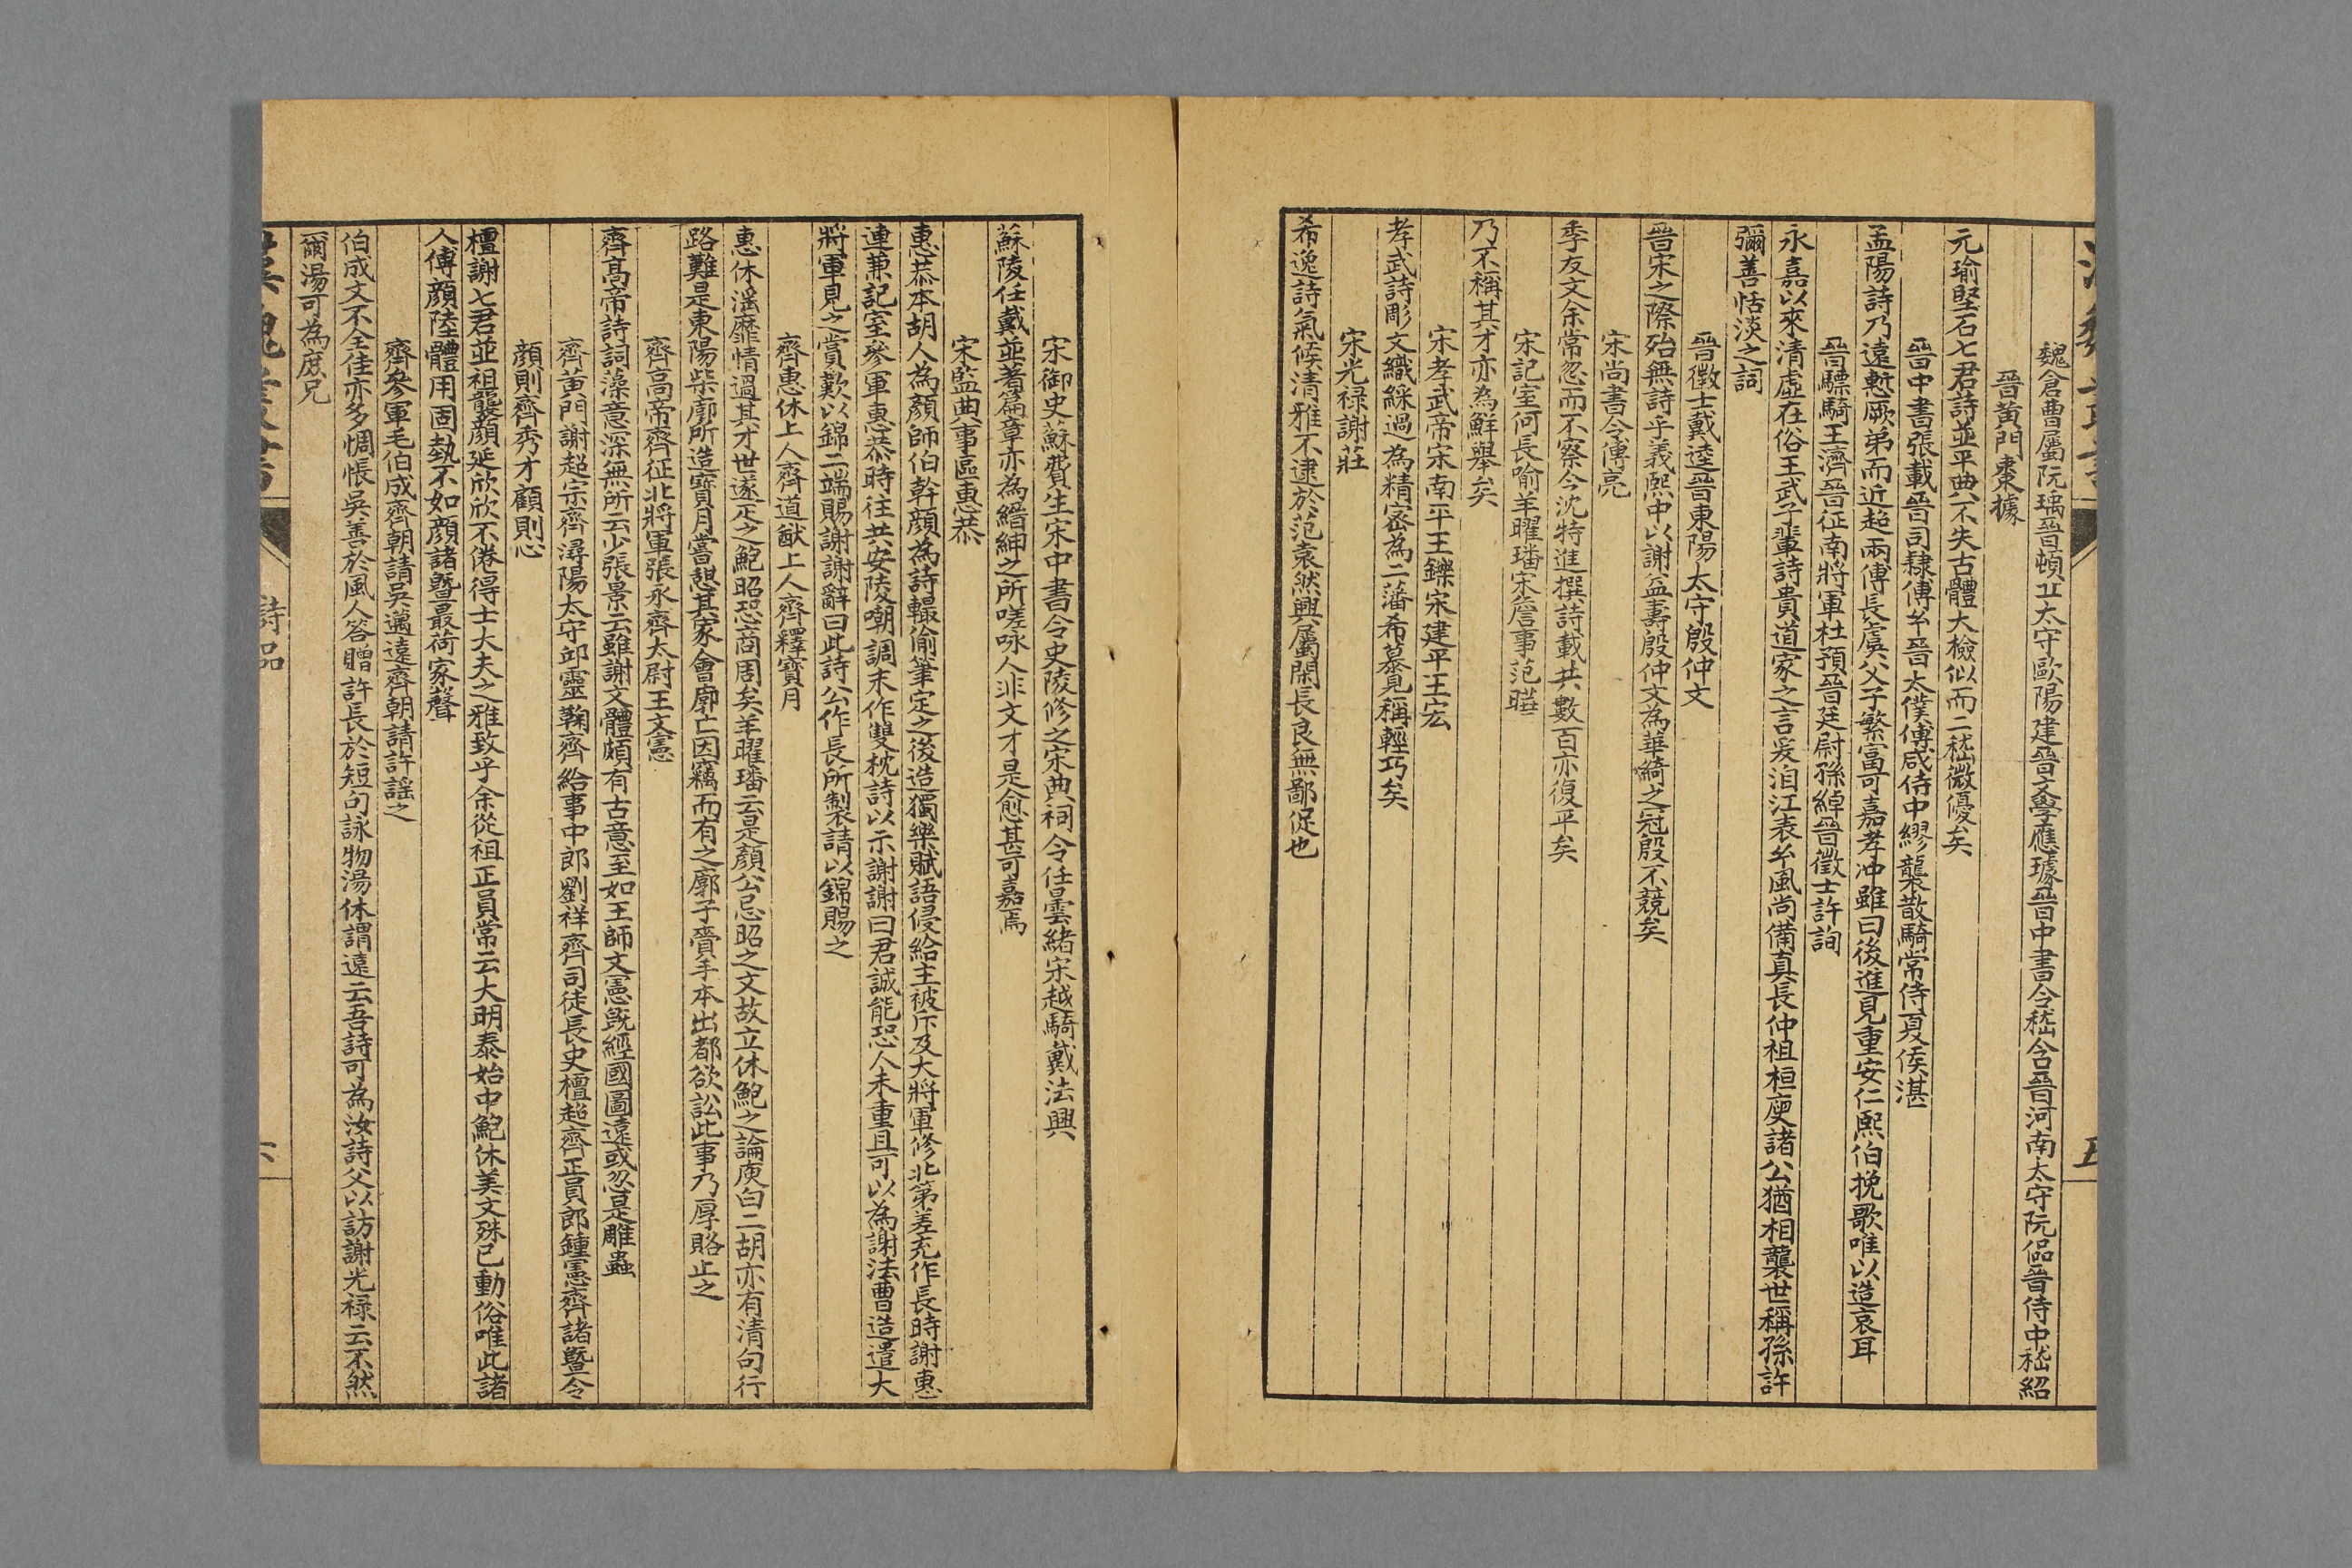 魏倉曹屬阮瑀晉頓丘太守歐陽建晉文學應璩晉中書令嵇含晉河南太守阮侃晉侍中嵇紹
晉黃門棗據
元瑜堅石七君詩並平典不失古體大檢似而二嵇微優矣
晉中書張載晉司隸傅玄晉太僕傅咸侍中繆襲散騎常侍夏侯湛
孟陽詩乃遠慙厥弟而近超兩傅長虞父子繁富可嘉孝沖雖曰後進見重安仁熙伯挽歌唯以造哀耳
晉驃騎王濟晉征南將軍杜預晉廷尉孫綽晉徵士許詢
永嘉以來清虛在俗王武子輩詩貴道家之言爰洎江表玄風尚備真長仲祖桓庾諸公猶相襲世稱孫許
彌善恬淡之詞
晉徵士戴逵晉東陽太守殷仲文
晉宋之際殆無詩乎義熙中以謝益壽殷仲文為華綺之冠殷不競矣
宋尚書令傅亮
季友文余常忽而不察今沈特進撰詩載其數首亦復平矣
宋記室何長喻羊曜璠宋詹事范曄
乃不稱其才亦為鮮舉矣
宋孝武帝宋南平王鑠宋建平王宏
孝武詩彫文織綵過為精密為二藩希慕見稱輕巧矣
宋光祿謝莊
希逸詩氣候清雅不逮於范袁然興屬閑長良無鄙促也
宋御史蘇賚生宋中書令史陵修之宋典祠令任曇緒宋越騎戴法興
蘇陵任戴並著篇章亦為縉紳之所嗟咏人非文才是愈甚可嘉焉
宋監典事區惠恭
惠恭本胡人為顏師伯幹顏為詩輒偷筆定之後造獨樂賦語侵給主被斥及大將軍修北第差充作長時謝惠
連兼記室參軍惠恭時往共安陵嘲調末作雙枕詩以示謝謝曰君誠能恐人未重且可以為謝法曹造遺大
將軍見之賞歎以錦二端賜謝謝辭曰此詩公作長所製請以錦賜之
齊惠休上人齊道猷上人齊釋寶月
惠休淫靡情過其才世遂疋之鮑昭恐商周矣羊曜璠云是顏公忌昭之文故立休鮑之論庾白二胡亦有清句行
路難是東陽柴廓所造寶月嘗憩其家會廓亡因竊而有之廓子齎手本出都欲訟此事乃厚賂止之
齊高帝齊征北將軍張永齊太尉王文憲
齊高帝詩詞藻意深無所云少張景云雖謝文體頗有古意至如王師文憲既經國圖遠或忽是雕蟲
齊黃門謝超宗齊潯陽太守邱靈鞠齊給事中郎劉祥齊司徒長史檀超齊正員郎鍾憲齊諸暨令
顏則齊秀才顧則心
檀謝七君並祖襲顏延欣欣不倦得士大夫之雅致乎余從祖正員常云大明泰始中鮑休美文殊已動俗唯此諸
人傅顏陸體用固執不如顏諸暨最荷家聲
齊參軍毛伯成齊朝請吳邁遠齊朝請許謡之
伯成文不全佳亦多惆悵吳善於風人答贈許長於短句詠物湯休謂遠云吾詩可為汝詩父以訪謝光祿云不然
爾湯可為庶兄
詩品
六